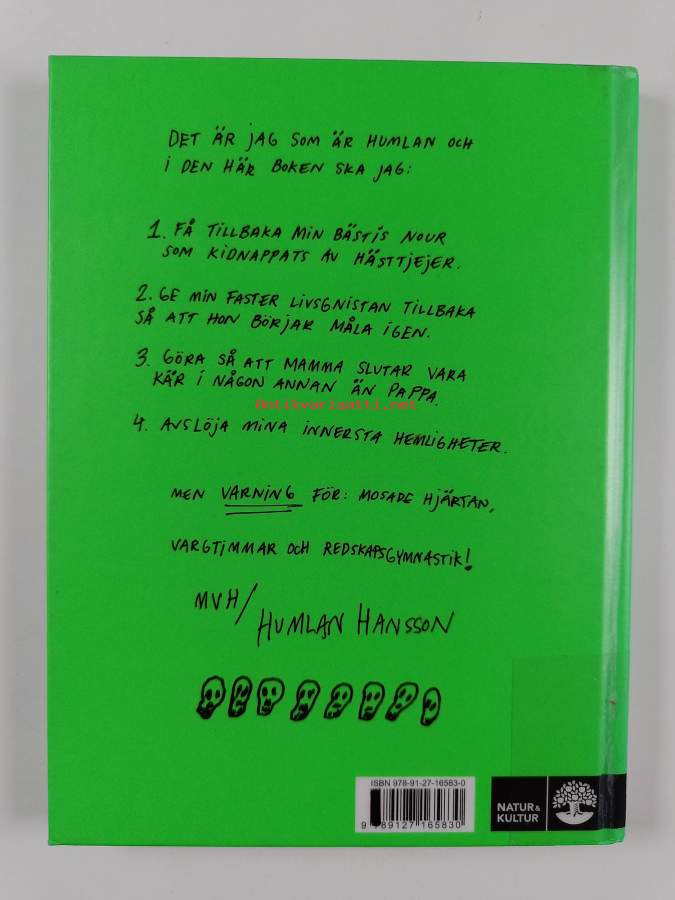 DET ÄR JAG SOM ÄR HUMLAN OCH
I DEN HÄR BOKEN SKA JAG:
1. FÅ TILLBAKA MIN BÄSTIS NOUR
SOM KIDNAPPATS AV HÄSTTJEJER.
2. GE MIN FASTER LIVSGNISTAN TILLBAKA
SÅ ATT HON BÖRJAR MÅLA IGEN.
3. GÖRA SÅ ATT MAMMA SLUTAR VARA
KÄR I NÅGON ANNAN ÄN PAPPA.
Antikvariaatti.net
4. AVSLÖJA MINA INNERSTA HEMLIGHETER.
MEN VARNING FÖR: MOSADE HJÄRTAN,
VARGTIMMAR OCH REDSKAPSGYMNASTIK!
MVH/
HUMLAN HANSSON
ISBN 978-91-27-16583-0
9 789127 165830
NATUR &
KULTUR